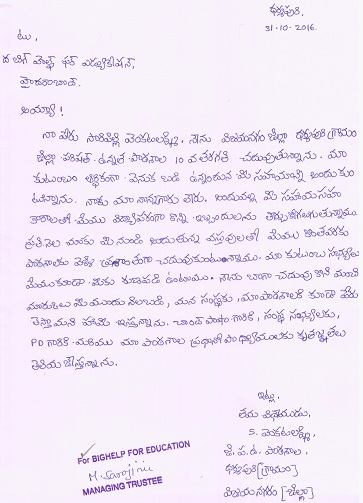 ధర్మపురి,
31-10-2016.
టు,
ద బిగ్ హెల్ప్ ఫర్ ఎడ్యుకేషన్,
హైదరాబాద్.
అయ్యా!
నా పేరు సారిపల్లి వెంకటలక్ష్మి. నేను విజయనగరం జిల్లా ధర్మపురి గ్రామం
జిల్లా పరిషత్ ఉన్నత పాఠశాల 10 వ తరగతి చదువుతున్నాను. మా
కుటుంబం ఆర్థికంగా వెనుక బడి ఉన్నందున మీ సహాయాన్ని అందుకుం
టున్నాను. నాకు మా నాన్నగారు లేరు. అందువల్ల మీ సహాయ సహ
కారాలతో మేము విద్యాపరంగా కొన్ని ఇబ్బందులను
ప్రతి నెల మాకు మీ నుండి అందుతున్న వస్తువులతో మేము
పాఠశాలకు వెళ్లి ప్రశాంతంగా చదువుకుంటున్నాము. మా కుటుంబ సభ్యులు
మేము కూడా మీకు ఉంటాము. నేను బాగా చదువు కొని మంచి
మార్కులు మీ ముందు నిలబడి, మన సంస్థకు, మా పాఠశాలకి కూడా పేరు
తెస్తా మని హామీ ఇస్తున్నాను. చాంద్ పాషా గారికి, సంస్థ సభ్యులకు,
PD గారికి మరియు మా పాఠశాల ప్రధానోపాధ్యాయులకు కృతజ్ఞతలు
తెలియ జేస్తున్నాను.
ఇట్లు,
తమ విధేయుడు,
S. వెంకటలక్ష్మి,
జి. ప. ఉ. పాఠశాల,
ధర్మపురి [గ్రామం]
విజయనగరం [జిల్లా]
For BIGHELP FOR EDUCATION
M. Sarojini
MANAGING TRUSTEE